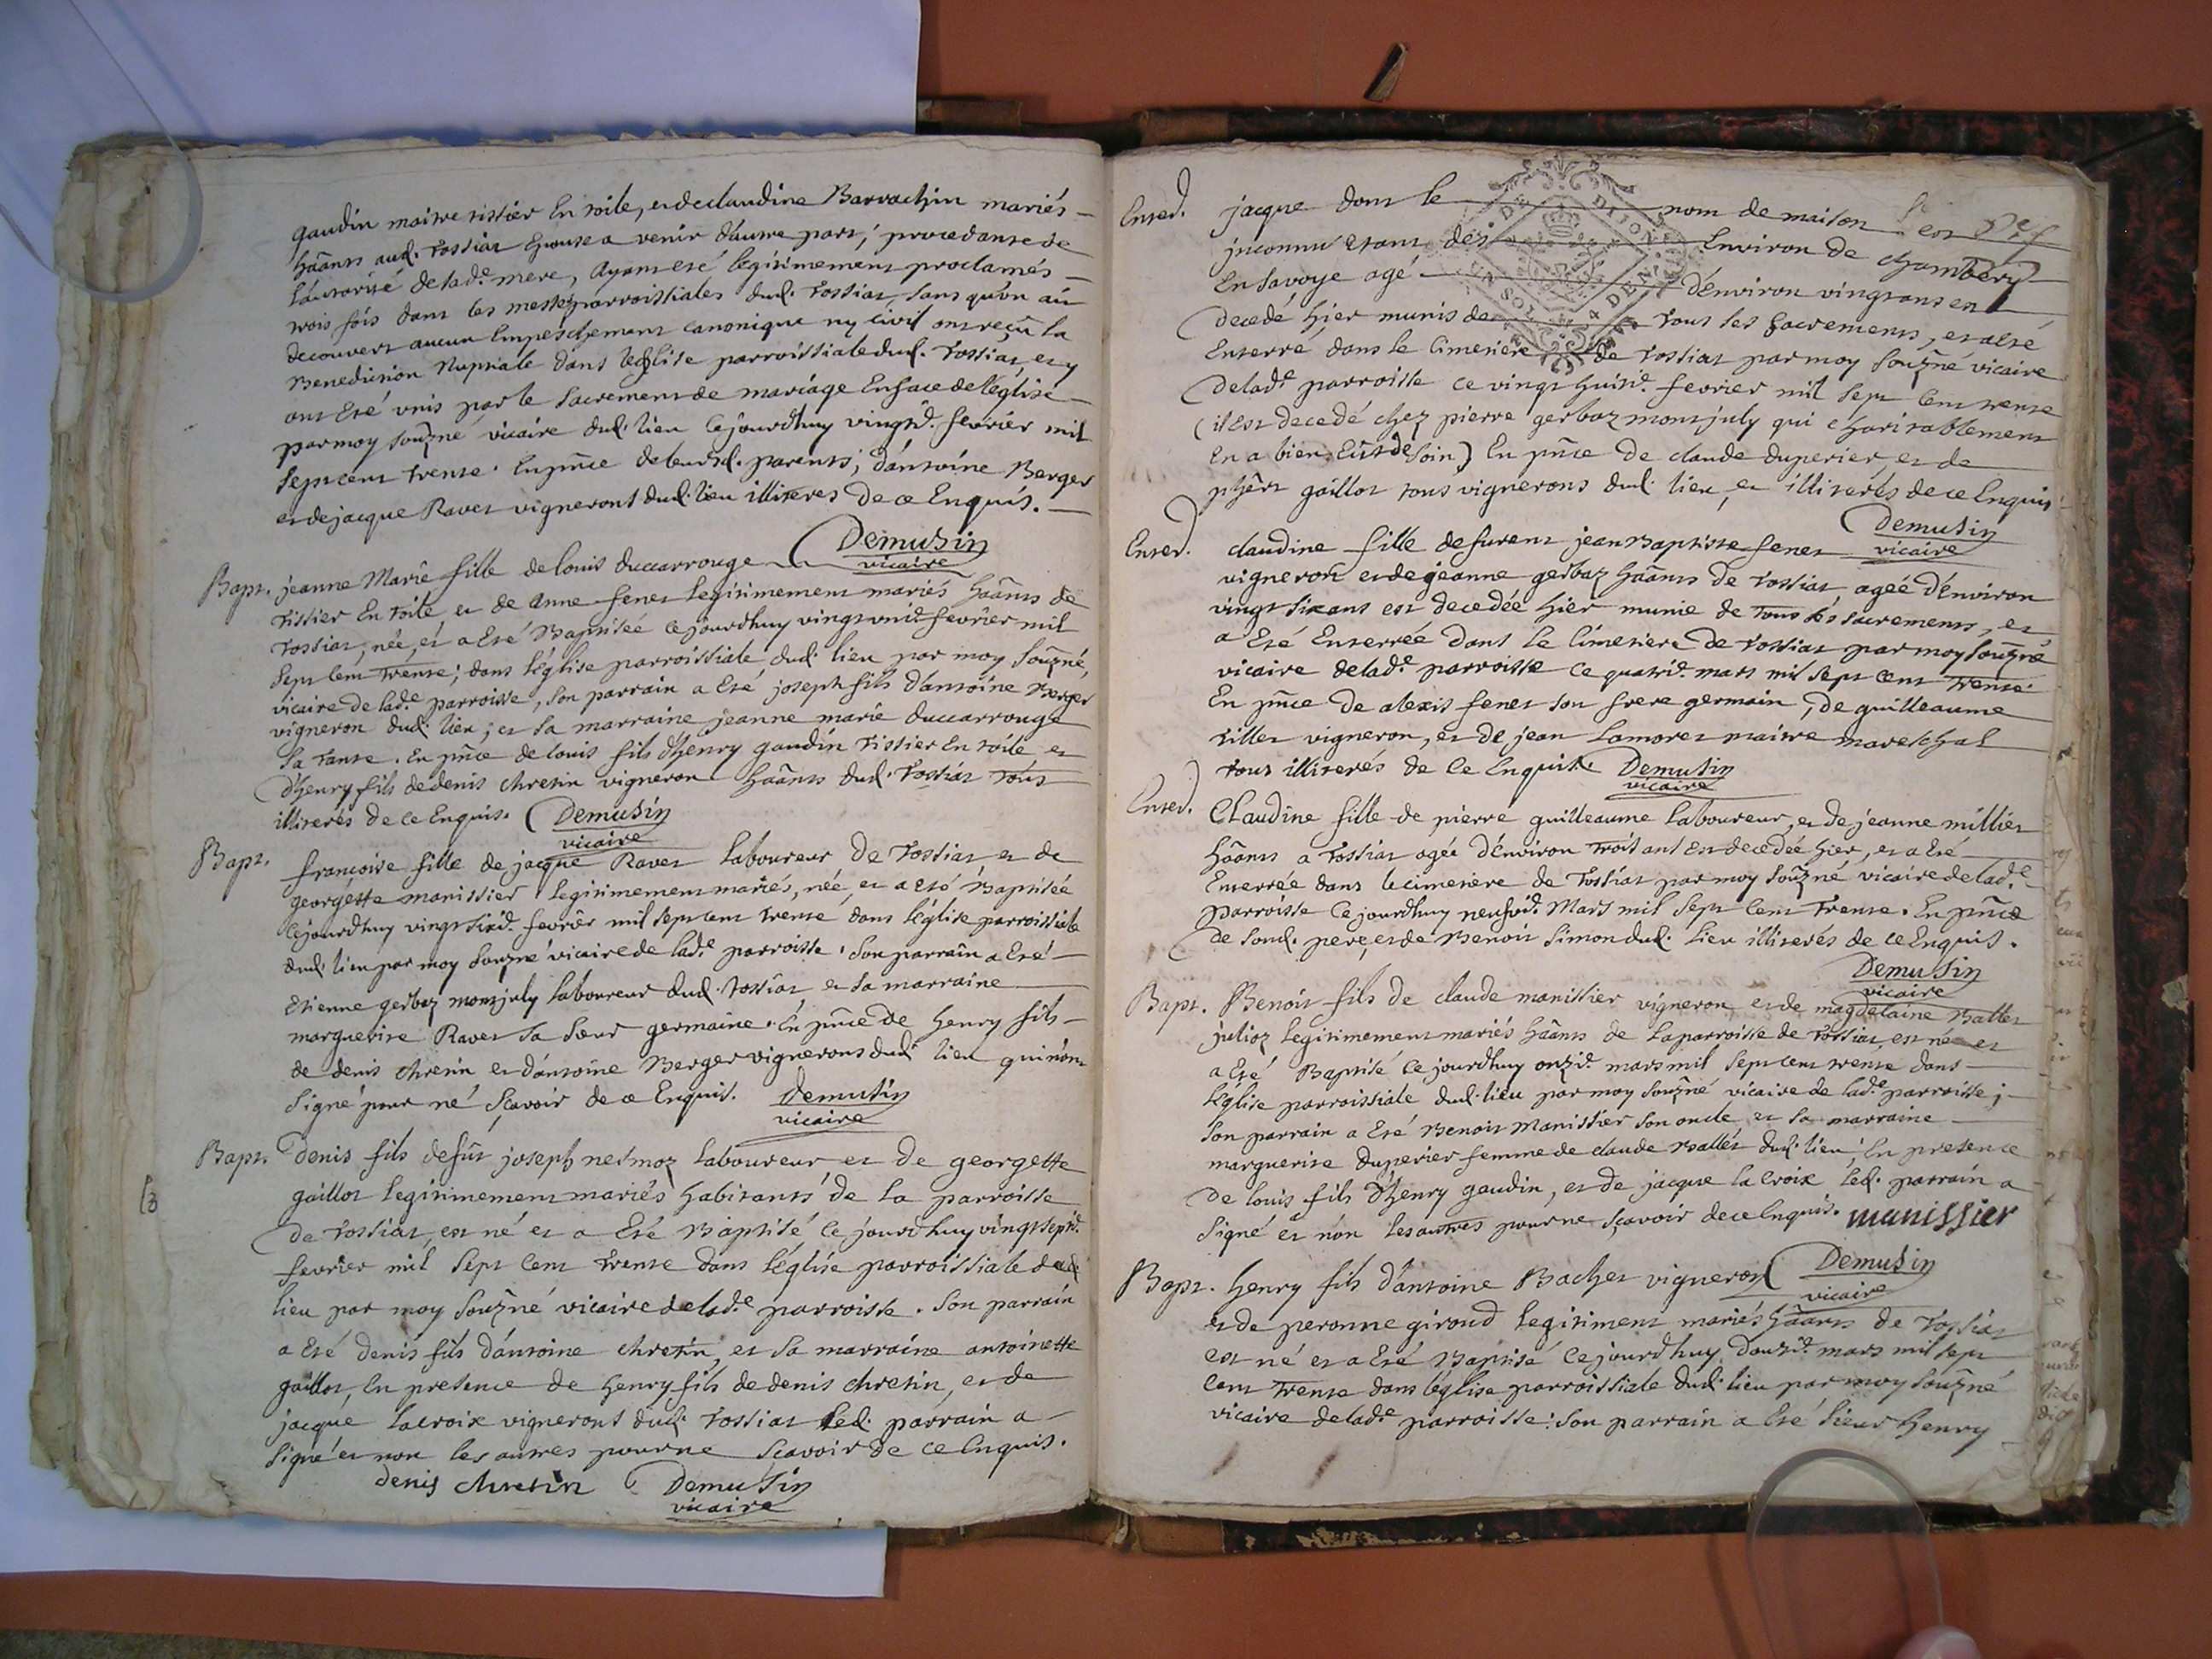 gaudin maitre tissier En toile, et de claudine Barrachin mariés
hããnts aud. Tossiat Epouse a venir d'autre part; procedante de
l'autorité de lad.e mere, Ayant eté legitimement proclamés
trois fois dans les messes parroissiales dud. Tossiat, sans qu'on ait
decouvert aucun Empeschement canonique ny civil ont reçû la
Benediction Nuptiale dans l'eglise parroissiale dud. Tossiat, et y
ont Eté unis par le sacrement de mariage En face de l'église
par moy souzñé vicaire dud. lieu Cejourdhuy vingtd. fevrier mil
sept cent trente. En pñce de leursd. parents; d'antoine Berger
et de jacque Ravet vignerons dud. lieu illiterés de ce Enquis.
Demusin
vicaire
Bapt. jeanne Marie fille de louis duccarrouge
Tissier En toile, et de Anne fenet legitimement mariés hãânts de
Tossiat, née, et a Eté Baptisée Cejourdhuy vingt unid. fevrier mil
sept Cent Trente; dans l'église parroissiale dud. lieu par moy souzñé,
vicaire de lad.e parroisse, son parrain a Eté joseph fils d'antoine Berger
vigneron dud. lieu; et sa marraine jeanne marie duccarrouge
sa tante. En pñce de louis fils d'henry gaudin Tissier En toile et
d'henry fils de denis chretin vigneron hãânts dud. Tossiat Tous
illiterés de ce Enquis. Demusin
vicaire
Bapt. françoise fille de jacque Ravet laboureur de Tossiat et de
georgette manissier legitimement mariés, née, et a eté Baptisée
Cejourdhuy vingt sixd. fevrier mil sept cent trente dans l'église parroissiale
dud. lieu par moy souzñé vicaire de lad.e parroisse. son parrain a Eté
Etienne gerbaz montjuly laboureur dud. Tossiat et sa marraine
marguerite Ravet sa soeur germaine. En pñce de henry fils
de denis chretin et d'antoine Berger vignerons dud. lieu qui n'ont
signé pour né sçavoir de ce Enquis. Demusin
vicaire
Bapt. Denis fils defût joseph nesmoz laboureur, et de georgette
gaillot legitimement mariés habitants de la parroisse
de Tossiat, est né et a Eté Baptisé Ce jourdhuy vingt septd.
fevrier mil sept Cent Trente dans l'église parroissiale dud.
lieu par moy souzñé vicaire de lad.e parroisse. son parrain
a Eté denis fils d'antoine chretin, et sa marraine antoinette
gaillot, En presence de henry fils de denis chretin, et de
jacque lacroix vignerons dud. Tossiat led. parrain a
signé et non les autres pour ne sçavoir de ce Enquis.
denis chretin Demusin
vicaire
Enterd. jacque dont le nom de maison est
inconnu Etant des Environ de chambery
En savoye agé d'environ vingt ans est
Decedé hier munis de Tous les sacrements, et a Eté
Enterré dans le Cimetiere de Tossiat par moy souzñé vicaire
de lad.e parroisse ce vingt huitd. fevrier mil sept Cent trente
(il Est decedé chez pierre gerbaz montjuly qui charitablement
En a bien Eût de soin) En pñce De claude duperier, et de
gaillot tous vignerons dud. lieu, et illiterés de ce Enquis
Demusin
vicaire
Enterd. claudine fille defurent jean Baptiste fenet
vigneron et de jeanne gerbaz hãânts de Tossiat, agée d'environ
vingt six ans est decedée hier munie de Tous les sacrements, et
a Eté Enterrée dans le Cimetiere de Tossiat par moy souzñé
vicaire de lad.e parroisse Ce quatrid. mars mil sept Cent Trente.
En pñce De alexis fenet son frere germain, de guilleaume
tillet vigneron, et de jean lamoret maitre mareschal
Tous illiterés de Ce Enquis. Demusin
vicaire
Enterd. Claudine fille de pierre guilleaume laboureur, et de jeanne millier
hãânts a Tossiat agée d'environ trois ans Est decedée hier, et a Eté
Enterrée dans le cimetiere de Tossiat par moy souzñé vicaire de lad.e
parroisse Ce jourdhuy neufvid. Mars mil sept Cent Trente. En pñce
de sond. pere, et de Benoit simon dud. lieu illiterés de ce Enquis.
Demusin
vicaire
Bapt. Benoit fils de claude manissier vigneron, et de magdelaine Ballet
julioz legitimement mariés hãânts de la parroisse de Tossiat, est né et
a Eté Baptisé Ce jourdhuy onzid. mars mil sept cent trente dans
l'église parroissiale dud. lieu par moy souzñé vicaire de lad.e parroisse;
son parrain a Eté Benoit Manissier son oncle et sa marraine
marguerite duperier femme de claude Ballet dud. lieu; En presence
De louis fils d'henry gaudin, et de jacque la croix led. parrain a
signé et non les autres pour ne sçavoir de ce Enquis. manissier
Bapt. henry fils d'antoine Bachet vigneron Demusin
vicaire
et de peronne giroud legitiment mariés hãânts de Tossiat
est né et a Eté Baptisé Cejourdhuy Douzid. mars mil sept
Cent Trente dans l'église parroissiale dud. lieu par moy souzñé
vicaire de lad.e parroisse: son parrain a Eté sieur henry